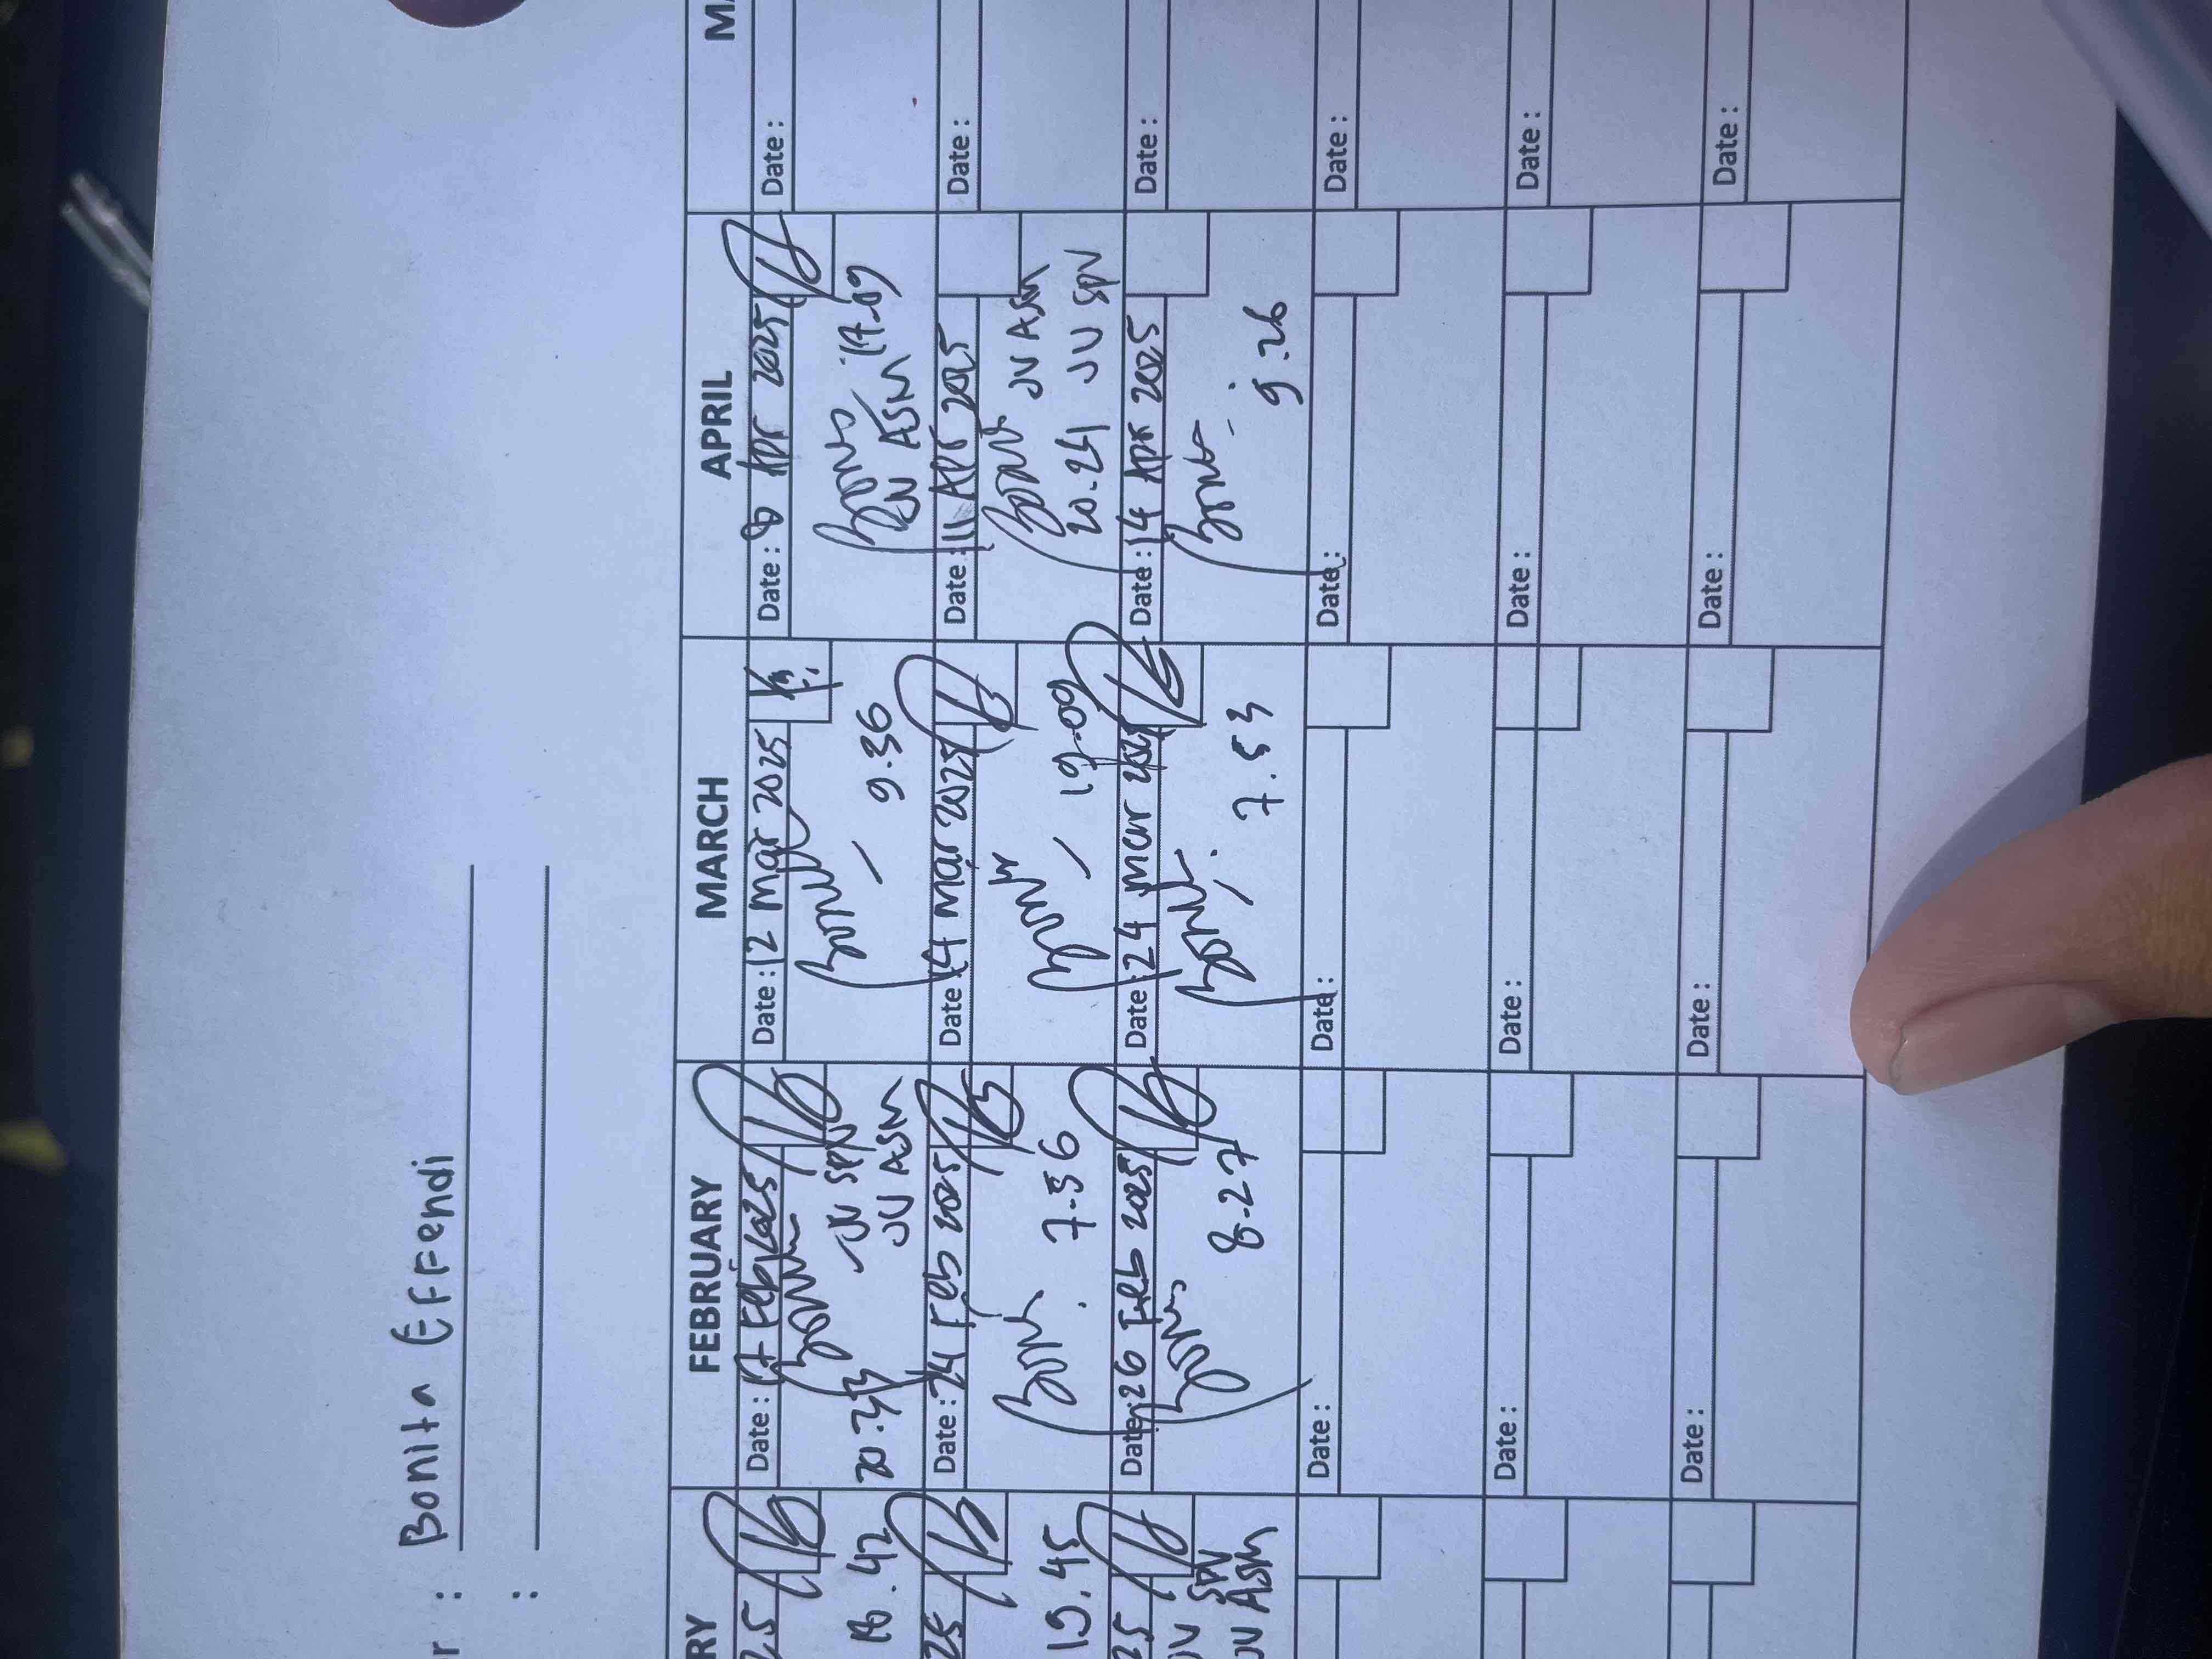 r : Bonita Effendi
:
RY FEBRUARY MARCH APRIL MA
25 Date : 17 Feb 2025 Date : 12 Mar 2025 Date : 8 Apr 2025 Date :
JV SPV
.42 20. JV ASM 9.36 JV ASM 17.09
25 Date : 24 Feb 2025 Date : 14 Mar 2025 Date : 11 Apr 2025 Date :
JV ASM
19.45 7.36 19.09 20.21 JV SPV
25 Date : 26 Feb 2025 Date : 24 Mar 2025 Date : 14 Apr 2025 Date :
JV SPV
JV ASM 8.27 7.53 9.26
Date : Date : Date : Date :
Date : Date : Date : Date :
Date : Date : Date : Date :